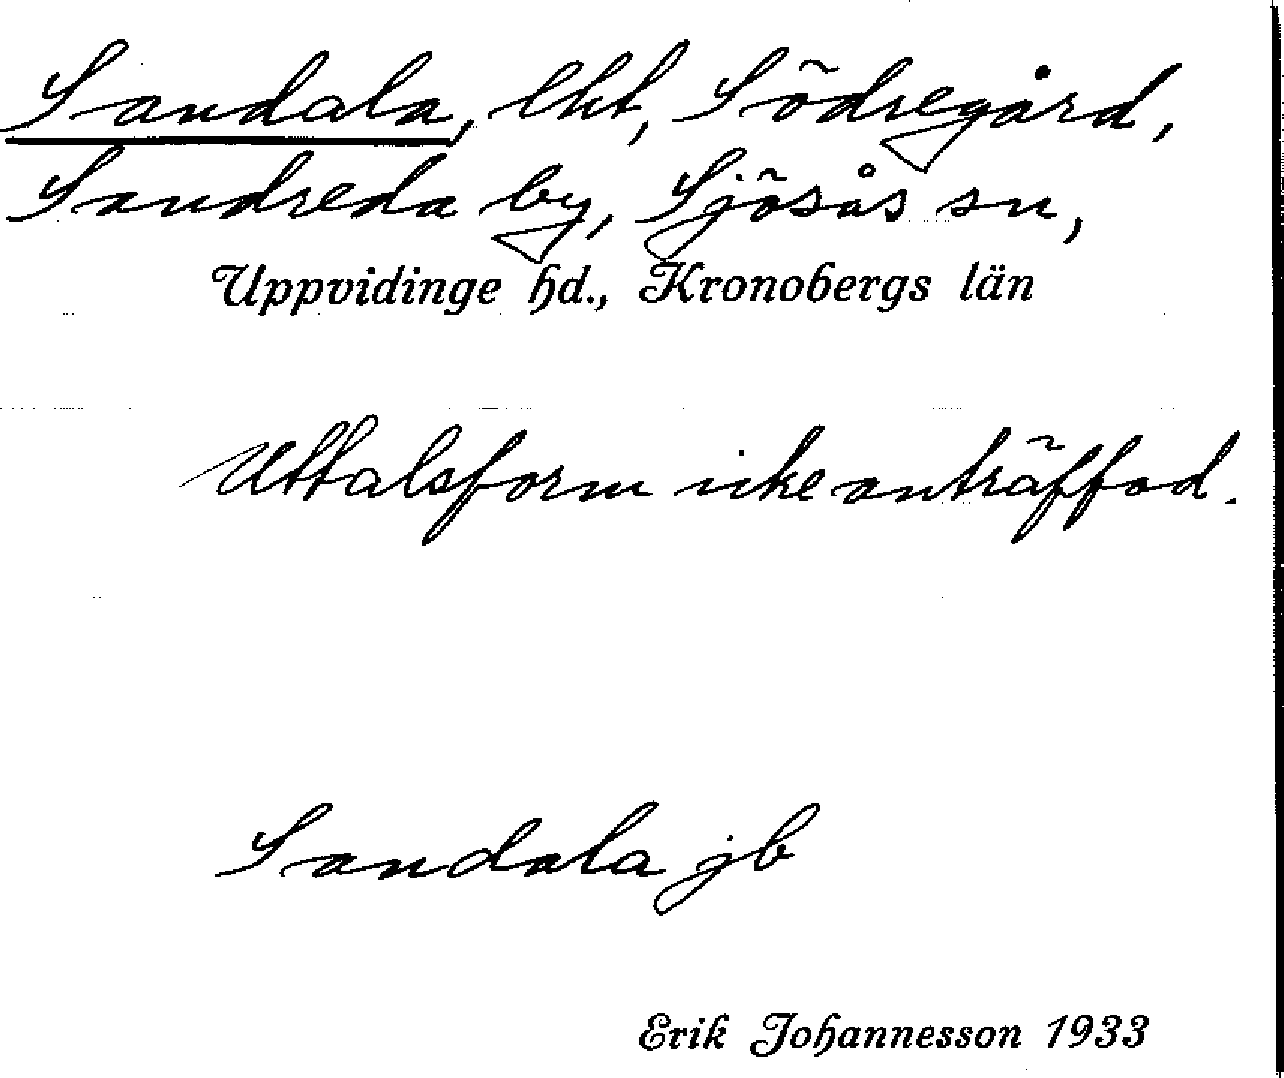 Sandala, lht, Södregård,
Sandreda by, Sjösås sn,
Uppvidinge hd., Kronobergs län
Uttalsform icke anträffad.
Sandala jb
Erik Johannesson 1933